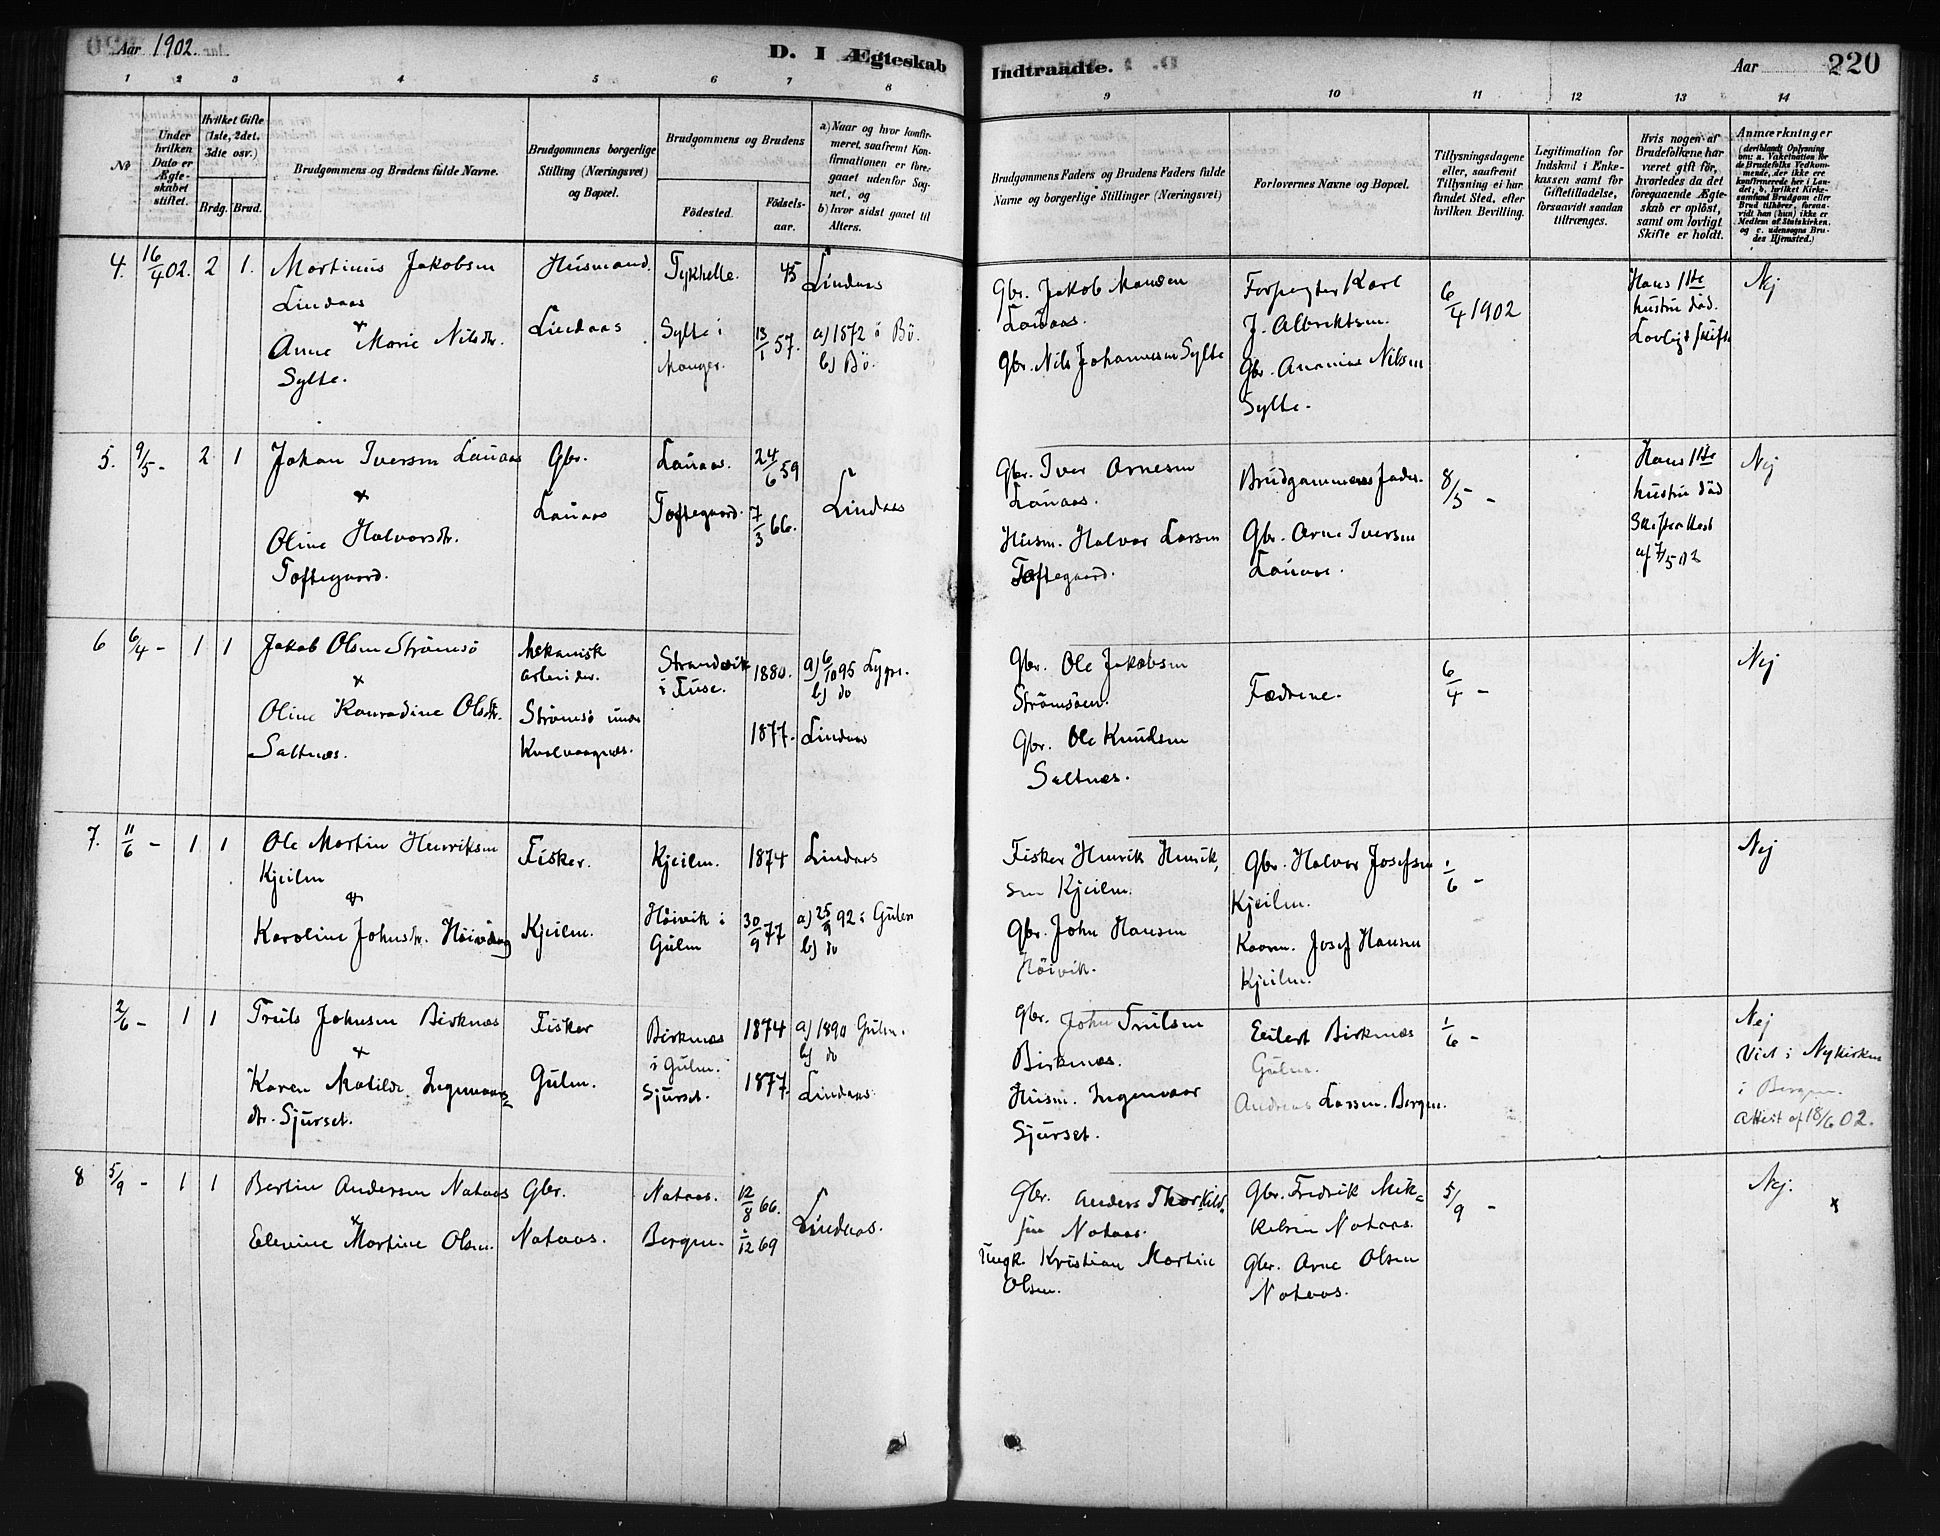 Aar 1902.
D. I Ægteskab
Indtraadte.
Aar
220
1 2 3 4 5 6 7 8
9 10 11 12 13 14
No
Under hvilken Dato er Ægteskabet stiftet.
Hvilket Gifte (1ste, 2det, 3die osv.)
Brdg. Brud.
Brudgommens og Brudens fulde Navne.
Brudgommens borgerlige Stilling (Næringsvei) og Bopæl.
Brudgommens og Brudens
Födested.
Födselsaar.
a) Naar og hvor konfirmeret, saafremt Konfirmationen er foregaaet udenfor Sognet, og
b) hvor sidst gaaet til Alters.
Brudgommens Faders og Brudens Faders fulde Navne og borgerlige Stillinger (Næringsvei)
Forlovernes Navne og Bopæl.
Tillysningsdagene eller, saafremt Tillysning ei har fundet Sted, efter hvilken Bevilling.
Legitimation for Indskud i Enkekassen samt for Giftetilladelse, forsaavidt saadan tiltrænges.
Hvis nogen af Brudefolkene har været gift før, hvorledes da det foregaaende Ægteskab er oplöst, samt om lovligt Skifte er holdt.
Anmærkninger
(deriblandt Oplysning om: a. Vakcination for de Brudefolks Vedkommende, der ikke ere konfirmerede her i Landet; b. hvilket Kirkesamfund Brudgom eller Brud tilhører, forsaavidt han (hun) ikke er Medlem af Statskirken, og c. udensogns Brudes Hjemsted.)
4. 16/4 02. 2 1. Martinus Jakobsen
Lindaas
+
Anne Marie Nilsdtr.
Sylte.
Husmand.
Lindaas
Tykhelle.
Sylte i
Manger.
45
13/1 57.
Lindaas
a) 1872 i Bö.
b) Bö.
Gbr. Jakob Monsen
Lauaas.
Gbr. Nils Johannessen Sylte
Forpagter Karl
J. Albriktsen.
Gbr. Ananias Nilsen
Sylte.
6/4 1902
Hans 1ste
hustru död.
Lovligt skifte
Nej
5. 9/5 - 2 1 Johan Iversen Lauaas
+
Oline Halvorsdtr.
Toftegaard.
Gbr.
Lauaas
Lauaas.
Toftegaard.
24/6 59
7/3 66.
Lindaas
Gbr. Iver Arnesen
Lauaas.
Husm. Halvor Larsen
Toftegaard.
Brudgommens fader.
Gbr. Arne Iversen
Lauaas.
8/5 -
Hans 1ste
hustru död
Skifteattest
af 7/5 02
Nej
6 6/4 - 1 1 Jakob Olsen Strømsö
+
Oline Konradine Olsdtr.
Saltnæs.
Mekanisk
arbeider.
Strömsö under
Kvalvaagnæs.
Strandvik
i Fuse.
1880.
1877.
a) 6/10 95 Lygre.
b) do
Lindaas
Gbr. Ole Jakobsen
Strömsöen.
Gbr. Ole Knudsen
Saltnæs.
Fædrene.
6/4 -
Nej
7. 11/6 - 1 1 Ole Martin Henriksen
Kjeilen
+
Karoline Johnsdtr. Höivik
Fisker.
Kjeilen.
Kjeilen.
Höivik i
Gulen
1874
30/9 77
Lindaas
a) 25/9 92 i Gulen
b) do
Fisker Henrik Henrik-
sen Kjeilen.
Gbr. John Hansen
Höivik.
Gbr. Halvor Josefsen
Kjeilen.
Kaarm. Josef Hansen
Kjeilen.
1/6 -
Nej
2/6 - 1 1 Truls Johnsen Birknæs
+
Karen Matilde Ingemaars=
dtr. Sjurset.
Fisker
Gulen.
Birknæs
i Gulen.
Sjurset.
1874
1877.
a) 1890 Gulen.
b) do
Lindaas
Gbr. John Trulsen
Birknæs.
Husm. Ingemaar
Sjurset.
Eilert Birknæs
Gulen.
Andreas Larsen. Bergen.
1/6 -
Nej
Viet i Nykirken
i Bergen.
Attest af 18/6 02.
8 5/9 - 1 1 Bertin Andersen Nataas
+
Elevine Martine Olsen.
Gbr.
Nataas.
Nataas.
Bergen.
12/8 66.
/12 69
Lindaas.
Gbr. Anders Thorkild-
sen Nataas.
Ungk. Kristian Martin
Olsen.
Gbr. Fredrik Mik=
kelsen Nataas.
Gbr. Arne Olsen
Nataas.
5/9 -
Nej.
x